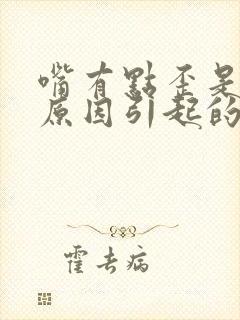 嘴有點歪是
原因引起的
霍去病